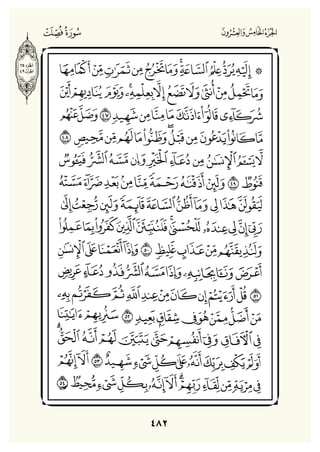 الجُزْءُ الخَامِسُ وَالعِشْرُونَ
سُورَةُ فُصِّلَتْ
۞ إِلَيْهِ يُرَدُّ عِلْمُ ٱلسَّاعَةِۚ وَمَا تَخْرُجُ مِن ثَمَرَٰتٍ مِّنْ أَكْمَامِهَا
وَمَا تَحْمِلُ مِنْ أُنثَىٰ وَلَا تَضَعُ إِلَّا بِعِلْمِهِۦۚ وَيَوْمَ يُنَادِيهِمْ أَيْنَ
شُرَكَآءِى قَالُوٓا۟ ءَاذَنَّٰكَ مَا مِنَّا مِن شَهِيدٍ ٤٧ وَضَلَّ عَنْهُم
مَّا كَانُوا۟ يَدْعُونَ مِن قَبْلُۖ وَظَنُّوا۟ مَا لَهُم مِّن مَّحِيصٍ ٤٨
لَّا يَسْـَٔمُ ٱلْإِنسَٰنُ مِن دُعَآءِ ٱلْخَيْرِ وَإِن مَّسَّهُ ٱلشَّرُّ فَيَـُٔوسٌ
قَنُوطٌ ٤٩ وَلَئِنْ أَذَقْنَٰهُ رَحْمَةً مِّنَّا مِنۢ بَعْدِ ضَرَّآءَ مَسَّتْهُ
لَيَقُولَنَّ هَٰذَا لِى وَمَآ أَظُنُّ ٱلسَّاعَةَ قَآئِمَةً وَلَئِن رُّجِعْتُ إِلَىٰ
رَبِّىٓ إِنَّ لِى عِندَهُۥ لَلْحُسْنَىٰۚ فَلَنُنَبِّئَنَّ ٱلَّذِينَ كَفَرُوا۟ بِمَا عَمِلُوا۟
وَلَنُذِيقَنَّهُم مِّنْ عَذَابٍ غَلِيظٍ ٥٠ وَإِذَآ أَنْعَمْنَا عَلَى ٱلْإِنسَٰنِ
أَعْرَضَ وَنَـَٔا بِجَانِبِهِۦ وَإِذَا مَسَّهُ ٱلشَّرُّ فَذُو دُعَآءٍ عَرِيضٍ
٥١ قُلْ أَرَءَيْتُمْ إِن كَانَ مِنْ عِندِ ٱللَّهِ ثُمَّ كَفَرْتُم بِهِۦ
مَنْ أَضَلُّ مِمَّنْ هُوَ فِى شِقَاقٍۭ بَعِيدٍ ٥٢ سَنُرِيهِمْ ءَايَٰتِنَا
فِى ٱلْءَافَاقِ وَفِىٓ أَنفُسِهِمْ حَتَّىٰ يَتَبَيَّنَ لَهُمْ أَنَّهُ ٱلْحَقُّۗ
أَوَلَمْ يَكْفِ بِرَبِّكَ أَنَّهُۥ عَلَىٰ كُلِّ شَىْءٍ شَهِيدٌ ٥٣ أَلَآ إِنَّهُمْ
فِى مِرْيَةٍ مِّن لِّقَآءِ رَبِّهِمْۗ أَلَآ إِنَّهُۥ بِكُلِّ شَىْءٍ مُّحِيطٌۢ ٥٤
٤٨٢